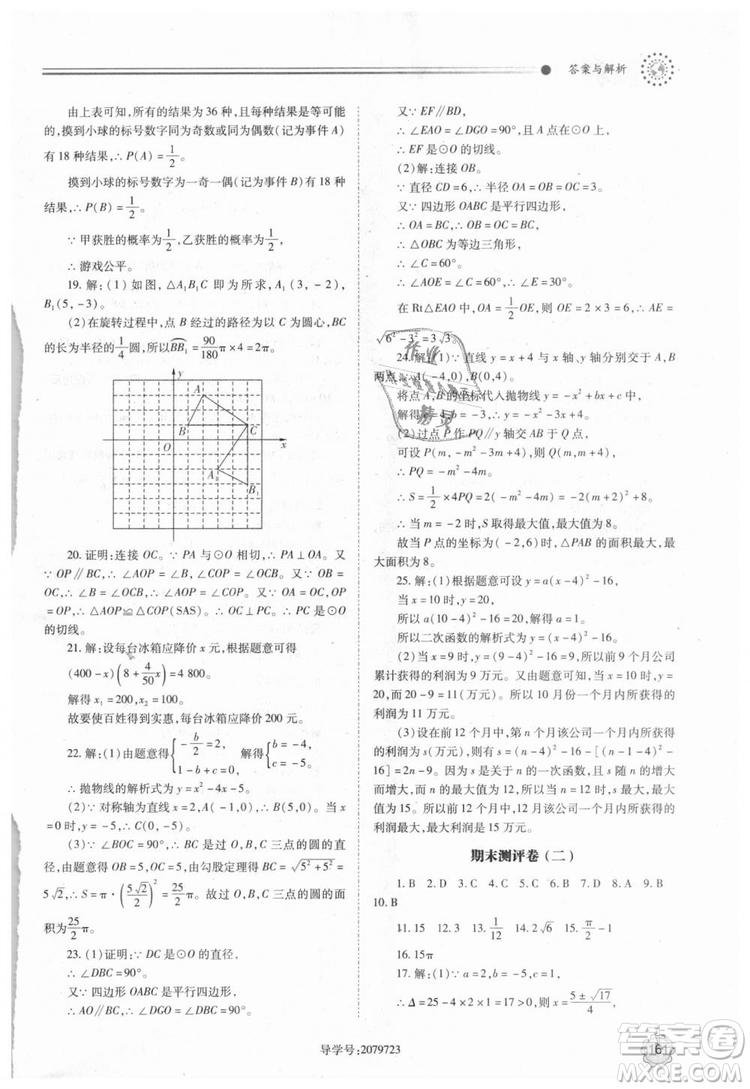 答案与解析
由上表可知,所有的结果为 36 种,且每种结果是等可能
的,摸到小球的标号数字同为奇数或同为偶数(记为事件 A)
有 18 种结果,∴ P(A) = 1/2.
摸到小球的标号数字为一奇一偶(记为事件 B)有 18 种
结果,∴ P(B) = 1/2.
∵ 甲获胜的概率为 1/2,乙获胜的概率为 1/2,
∴ 游戏公平.
19. 解:(1) 如图,△A₁B₁C 即为所求. A₁(3, -2),
B₁(5, -3).
(2)在旋转过程中,点 B 经过的路径为以 C 为圆心,BC
的长为半径的 1/4 圆,所以 BB₁ = 90/180 π × 4 = 2π.
y
A
B
C
O
x
B₁
20. 证明:连接 OC. ∵ PA 与⊙O 相切,∴ PA⊥OA. 又
∵ OP∥BC,∴ ∠AOP = ∠B,∠COP = ∠OCB. 又∵ OB =
OC,∴ ∠B = ∠OCB,∴ ∠AOP = ∠COP. 又∵ OA = OC,OP =
OP,∴ △AOP≌△COP(SAS). ∴ OC⊥PC. ∴ PC 是⊙O
的切线.
21. 解:设每台冰箱应降价 x 元,根据题意可得
(400 - x)(8 + 4/50 x) = 4 800.
解得 x₁ = 200,x₂ = 100.
故要使百姓得到实惠,每台冰箱应降价 200 元.
22. 解:(1)由题意得{ -b/2 = 2, 1 = 1 - b + c. 解得{ b = -4, c = -5.
∴ 抛物线的解析式为 y = x² - 4x - 5.
(2)∵ 对称轴为直线 x = 2,A(-1,0),
∴ B(5,0),C(0, -5).
(3)∵ ∠BOC = 90°,∴ BC 是过 B,O,C 三点的圆的直
径,由题意 OB = 5,OC = 5,由勾股定理得 BC = √(5² + 5²) =
5√2,∴ S = π · (5√2/2)² = 25/2 π. 故过 B,O,C 三点的圆的面
积为 25/2 π.
23. (1)证明:∵ DC 是⊙O 的直径,
∴ ∠DBC = 90°.
又∵ 四边形 OABC 是平行四边形,
∴ AO∥BC,∴ ∠DGO = ∠DBC = 90°.
又∵ EF∥BD,
∴ ∠EAO = ∠DGO = 90°,且点 A 在⊙O 上,
∴ EF 是⊙O 的切线.
(2)解:连接 OB.
∵ 直径 CD = 6,∴ 半径 OA = OB = OC = 3.
又∵ 四边形 OABC 是平行四边形,
∴ OA = BC,∴ OB = OC = BC,
∴ △OBC 为等边三角形,
∴ ∠C = 60°.
∴ ∠AOE = ∠C = 60°,∴ ∠E = 30°.
在 Rt△EAO 中,OA = 1/2 OE,∴ OE = 6,∴ AE =
√(6² - 3²) = 3√3.
24. 解:(1)∵ 直线 y = x + 4 与 x 轴、y 轴分别交于 A,B
两点,∴ A(-4,0),B(0,4).
将点 A,B 的坐标代入抛物线 y = -x² + bx + c,
解得 c = 4,b = -3,
(2)过点 P 作 PQ∥y 轴交 AB 于 Q 点,
可设 P(m, -m² - 3m + 4),则 Q(m,m + 4),
∴ PQ = -m² - 4m,
∴ S = 1/2 × 4PQ = 2(-m² - 4m) = -2(m + 2)² + 8.
∴ 当 m = -2 时,S 取得最大值,最大值为 8.
故当 P 点的坐标为(-2,6)时,△PAB 的面积最大,最
大面积为 8.
25. 解:(1)根据题意可设 y = a(x - 4)² - 16,
当 x = 10 时,y = 20,
所以 a(10 - 4)² - 16 = 20,解得 a = 1,
所以二次函数的解析式为 y = (x - 4)² - 16.
(2)当 x = 9 时,y = (9 - 4)² - 16 = 9,所以前 9 个月公司
累计获得的利润为 9 万元. 又由题意可知,当 x = 10 时,y =
20,而 20 - 9 = 11(万元),所以 10 月份一个月内所获得的
利润为 11 万元.
(3)设在前 12 个月中,第 n 个月该公司一个月内所获得
的利润为 s(万元),则有 s = (n - 4)² - 16 - [(n - 1 - 4)² -
16] = 2n - 9. 因为 s 是关于 n 的一次函数,且 s 随着 n 的增大
而增大,而 n 的最大值为 12,所以当 n = 12 时,s = 15,s 取最大
值,最大值为 15. 所以 12 月份该公司一个月内所获得的
利润最大,最大利润是 15 万元.
期末测评卷(二)
1. B 2. D 3. C 4. D 5. D 6. B 7. C 8. B 9. D
10. B
11. 15 12. 3 13. 1/12 14. 2√6 15. π/2 - 1
16. 15π
17. 解:(1)∵ 2x² - 5x + 1 = 0,
∴ Δ = 25 - 4 × 2 × 1 = 17 > 0,∴ x = (5 ± √17)/4,
导学号:2079723
MXQE.COM